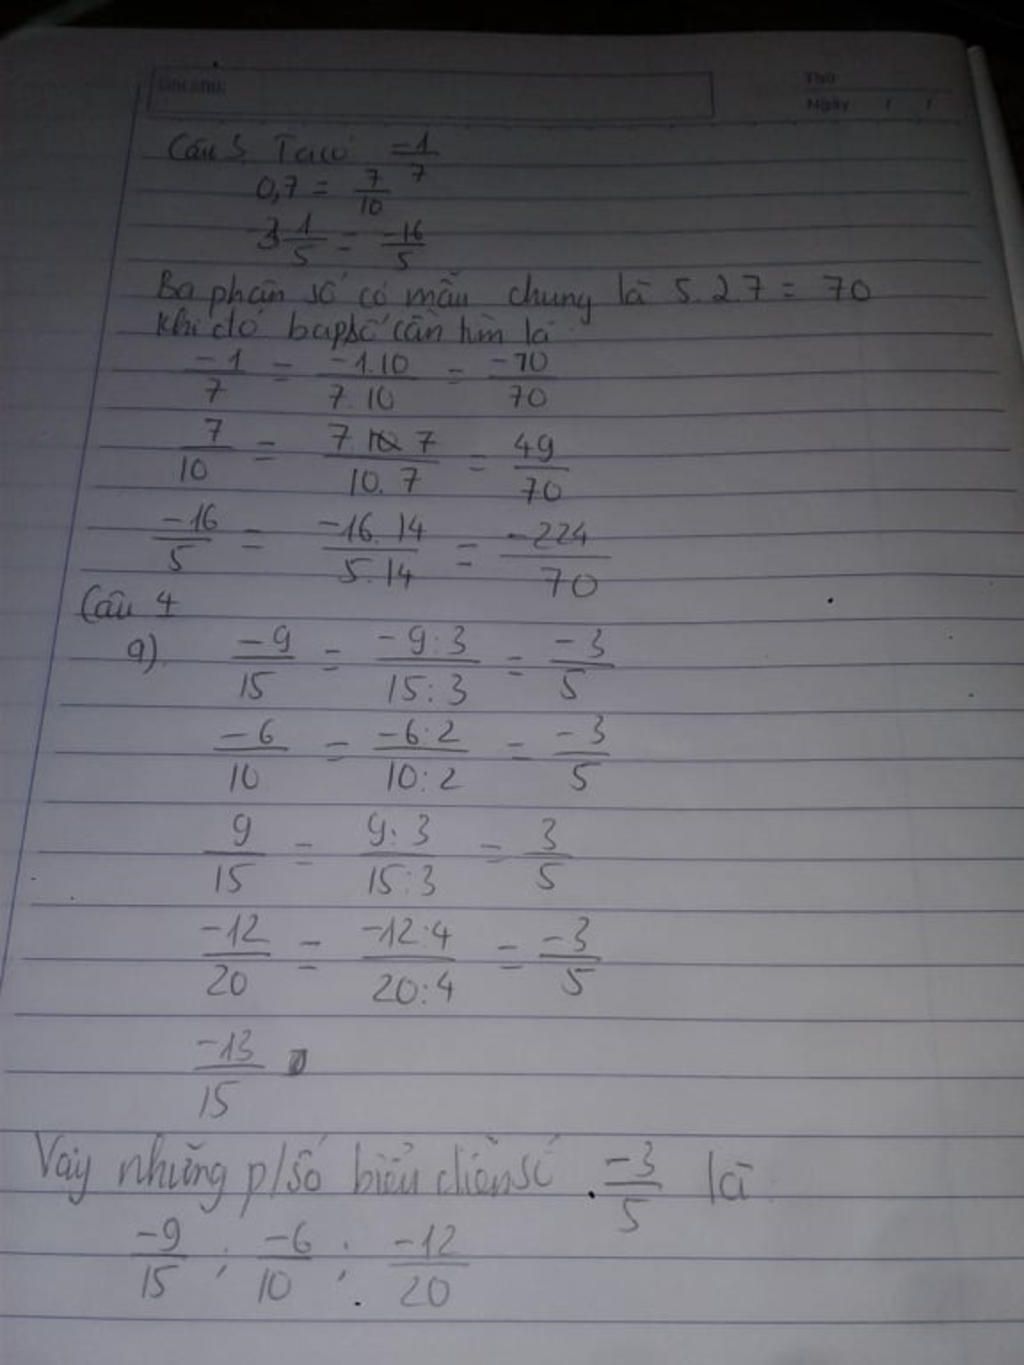 Ghi chú:
Thứ
Ngày / /
Câu 5 Ta có -1/7
0,7 = 7/10
-3 1/5 = -16/5
Ba phân số có mẫu chung là 5.2.7 = 70
Khi đó ba p/số cần tìm là
-1/7 = -1.10/7.10 = -70/70
7/10 = 7.7/10.7 = 49/70
-16/5 = -16.14/5.14 = -224/70
Câu 4
a) -9/15 = -9:3/15:3 = -3/5
-6/10 = -6:2/10:2 = -3/5
9/15 = 9:3/15:3 = 3/5
-12/20 = -12:4/20:4 = -3/5
-13/15
Vậy những p/số biểu diễn số -3/5 là
-9/15 ; -6/10 ; -12/20